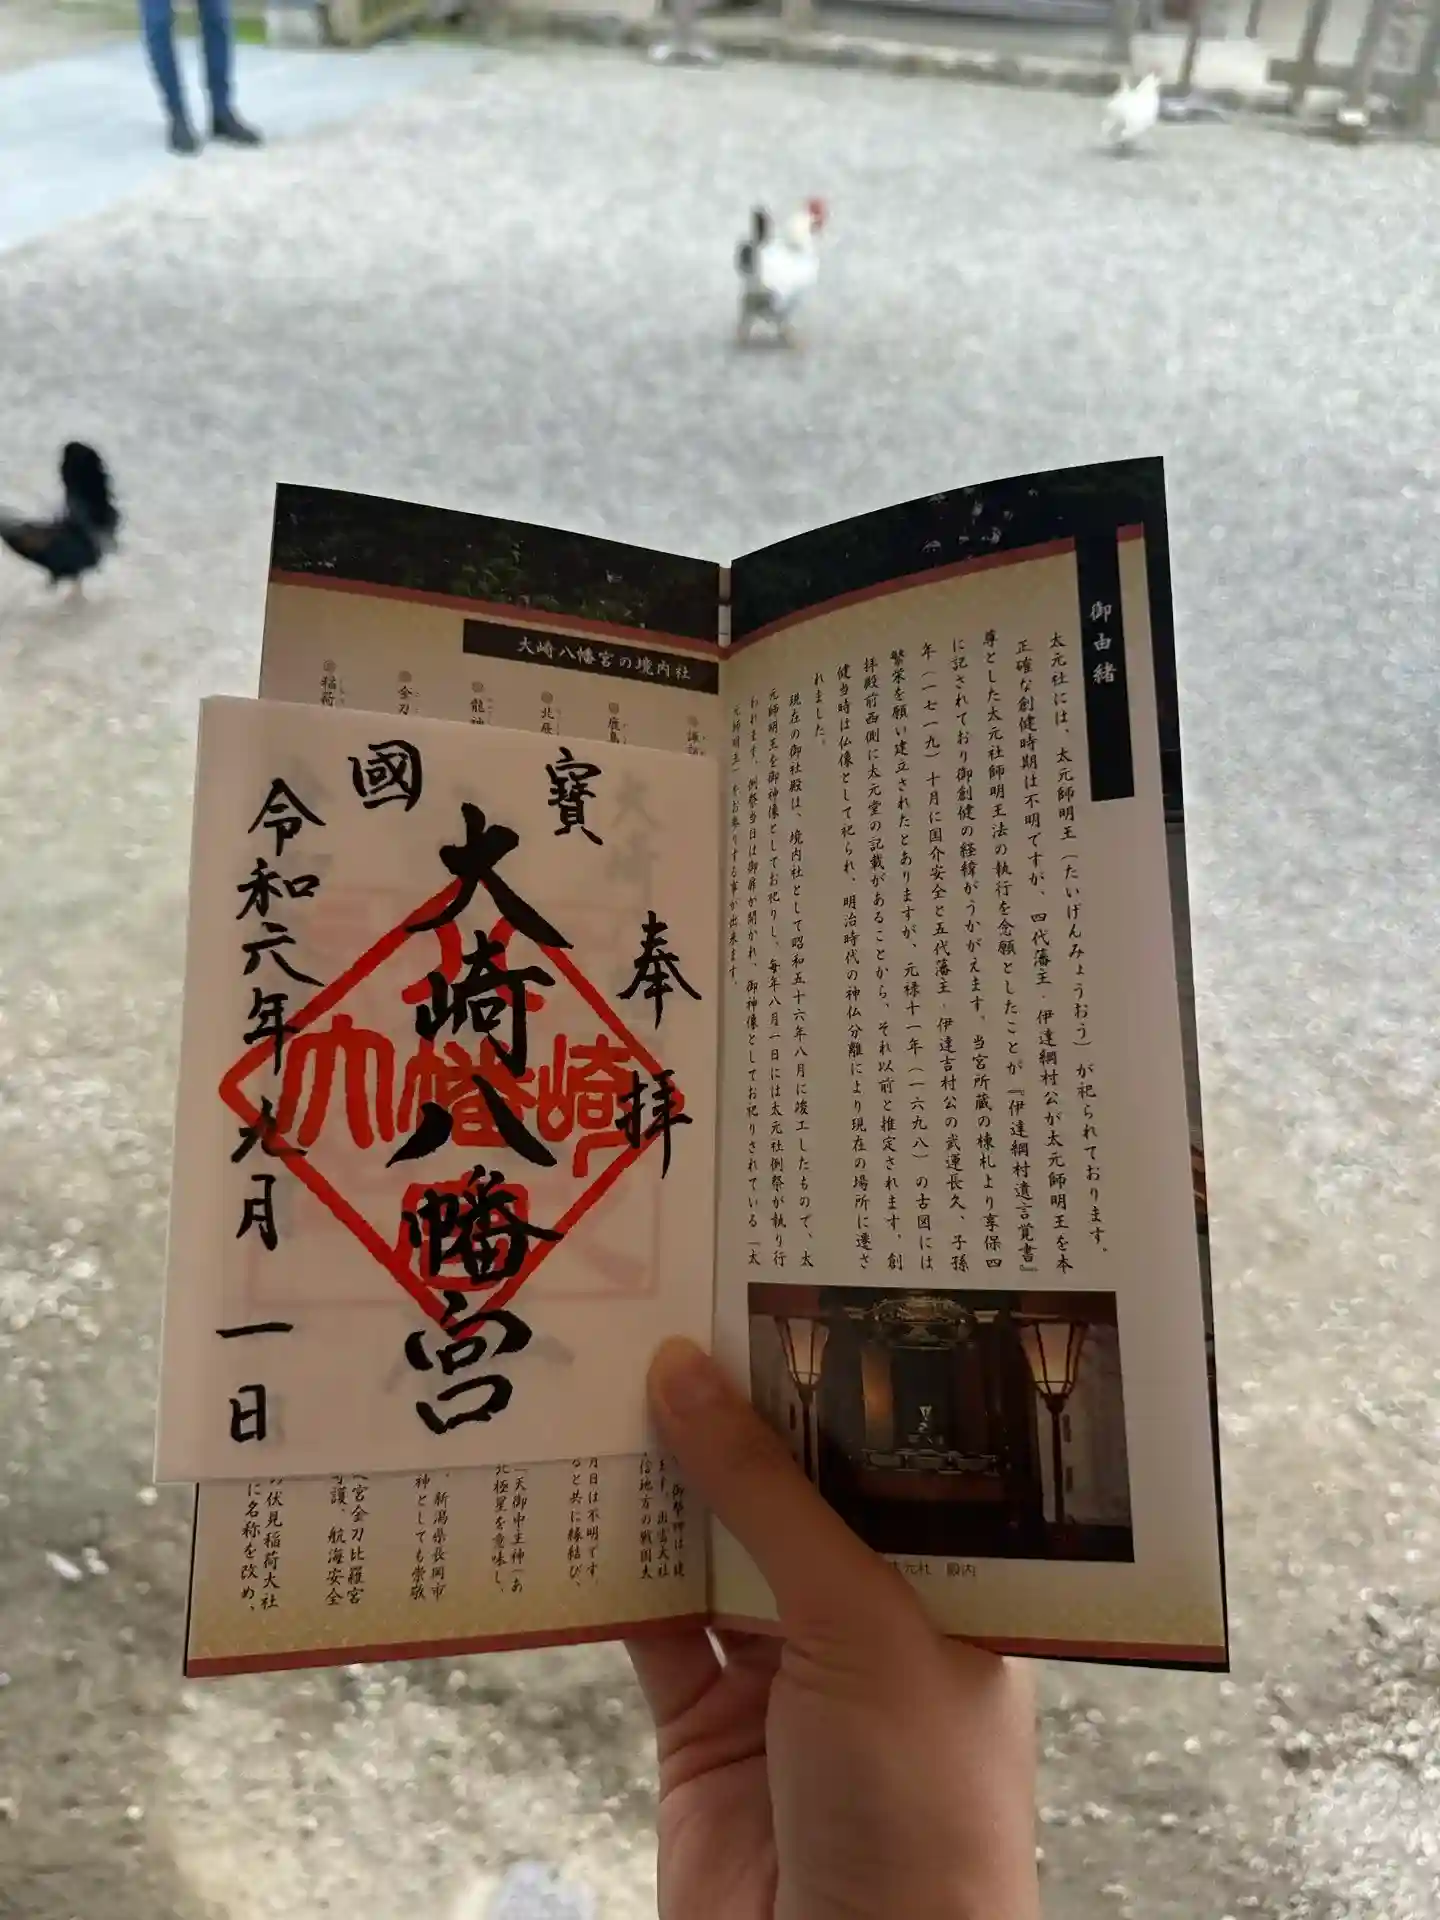 御由緒
太元社には、太元師明王（たいげんみょうおう）が祀られております。
正確な創健時期は不明ですが、四代藩主・伊達綱村公が太元師明王を本
尊とした太元社師明王法の執行を念願としたことが『伊達綱村遺言覚書』
に記されており御創健の経緯がうかがえます。当宮所蔵の棟札より享保四
年（一七一九）十月に国介安全と五代藩主・伊達吉村公の武運長久、子孫
繁栄を願い建立されたとありますが、元禄十一年（一六九八）の古図には
拝殿前西側に太元堂の記載があることから、それ以前と推定されます。創
健当時は仏像として祀られ、明治時代の神仏分離により現在の場所に遷さ
れました。
現在の御社殿は、境内社として昭和五十六年八月に竣工したもので、太
元師明王を御神像としてお祀りし、毎年八月一日には太元社例祭が執り行
われます。例祭当日は御扉が開かれ、御神像としてお祀りされている「太
元師明王」をお参りする事が出来ます。
太元社 殿内
大崎八幡宮の境内社
鹿島
北辰
龍神
金刀
稲荷
出雲大社
信地方の戦国大
月日は不明です。
ると共に縁結び、
「天御中主神（あ
北極星を意味し、
新潟県長岡市
神としても崇敬
宮金刀比羅宮
護、航海安全
の伏見稲荷大社
に名称を改め、
奉拝
寶
大崎八幡宮
國
令和六年九月一日
大
崎
八
幡
宮